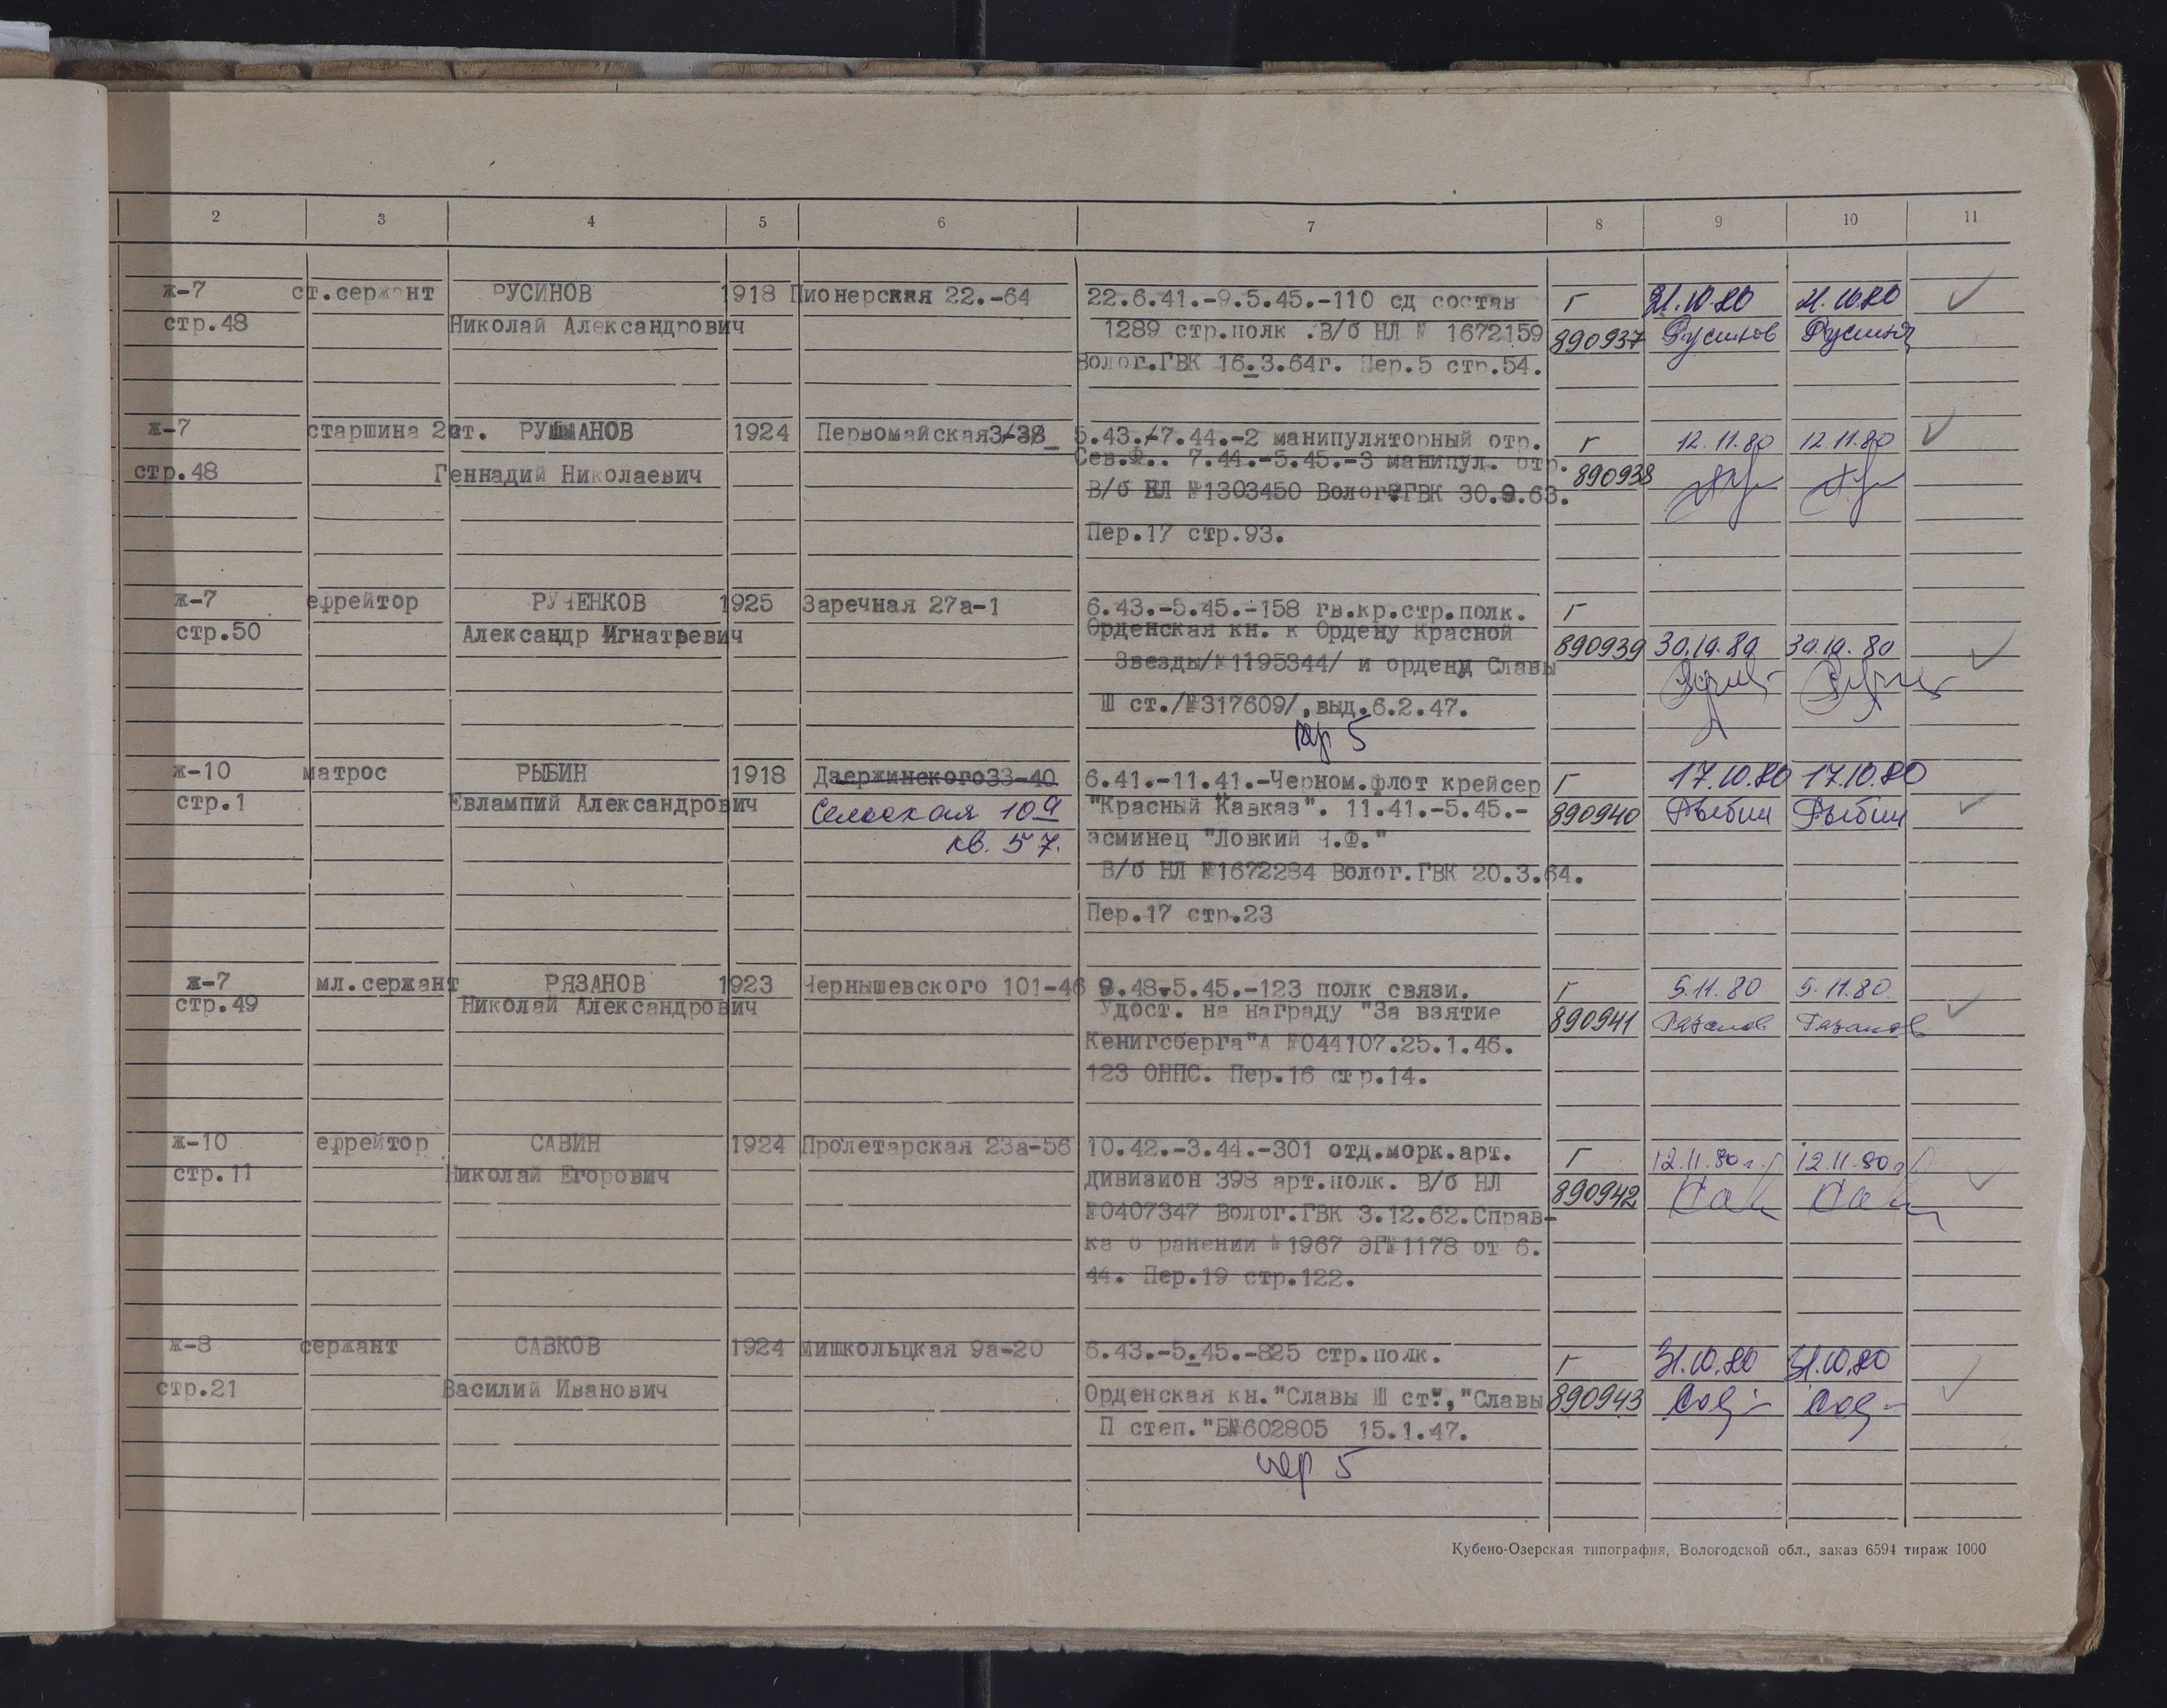 2 3 4 5 6 7 8 9 10 11
ж-7 ст.сержант РУСИНОВ 1918 Пионерская 22.-64 22.6.41.-9.5.45.-110 сд состав г 31.10.80 31.10.80
стр.48 Николай Александрович 1289 стр.полк .В/б НЛ № 1672159 890937 Русинов Русинов
Волог.ГВК 16.3.64г. Пер.5 стр.54.
ж-7 старшина 2 ст. РУШМАНОВ 1924 Первомайская 3/38 5.43.-7.44.-2 манипуляторный отр. г 12.11.80 12.11.80
Сев.Ф.. 7.44.-5.45.-3 манипул. отр.
стр.48 Геннадий Николаевич 890938
В/б НЛ №1303450 Волог.ГВК 30.9.63.
Пер.17 стр.93.
ж-7 ефрейтор РУЧЕНКОВ 1925 Заречная 27а-1 6.43.-5.45.-158 гв.кр.стр.полк. г
стр.50 Александр Игнатьевич Орденская кн. к Ордену Красной 890939 30.10.80 30.10.80
Звезды/№1195344/ и ордену Славы
Ш ст./№317609/,выд.6.2.47.
пер 5
ж-10 матрос РЫБИН 1918 Дзержинского33-40 6.41.-11.41.-Черном.флот крейсер г 17.10.80 17.10.80
стр.1 Евлампий Александрович Сельская 10а "Красный Кавказ". 11.41.-5.45.- 890940 Рыбин Рыбин
кв. 57. эсминец "Ловкий Ч.Ф."
В/б НЛ №1672284 Волог.ГВК 20.3.64.
Пер.17 стр.23
ж-7 мл.сержант РЯЗАНОВ 1923 Чернышевского 101-46 9.43-5.45.-123 полк связи. г 5.11.80 5.11.80
стр.49 Николай Александрович Удост. на награду "За взятие 890941 Рязанов Рязанов
Кенигсберга"А №044107.25.1.46.
123 ОННС. Пер.16 стр.14.
ж-10 ефрейтор САВИН 1924 Пролетарская 23а-56 10.42.-3.44.-301 отд.морк.арт. г 12.11.80г. 12.11.80г
стр.11 Николай Егорович дивизион 398 арт.полк. В/б НЛ 890942
№0407347 Волог.ГВК 3.12.62.Справ-
ка о ранении №1967 ЭГ№1178 от 6.
44. Пер.19 стр.122.
ж-8 сержант САВКОВ 1924 Мишкольцкая 9а-20 6.43.-5.45.-825 стр.полк. г 31.10.80 31.10.80
стр.21 Василий Иванович Орденская кн."Славы Ш ст", "Славы 890943
П степ."Б№602805 15.1.47.
пер 5
Кубено-Озерская типография, Вологодской обл., заказ 6594 тираж 1000